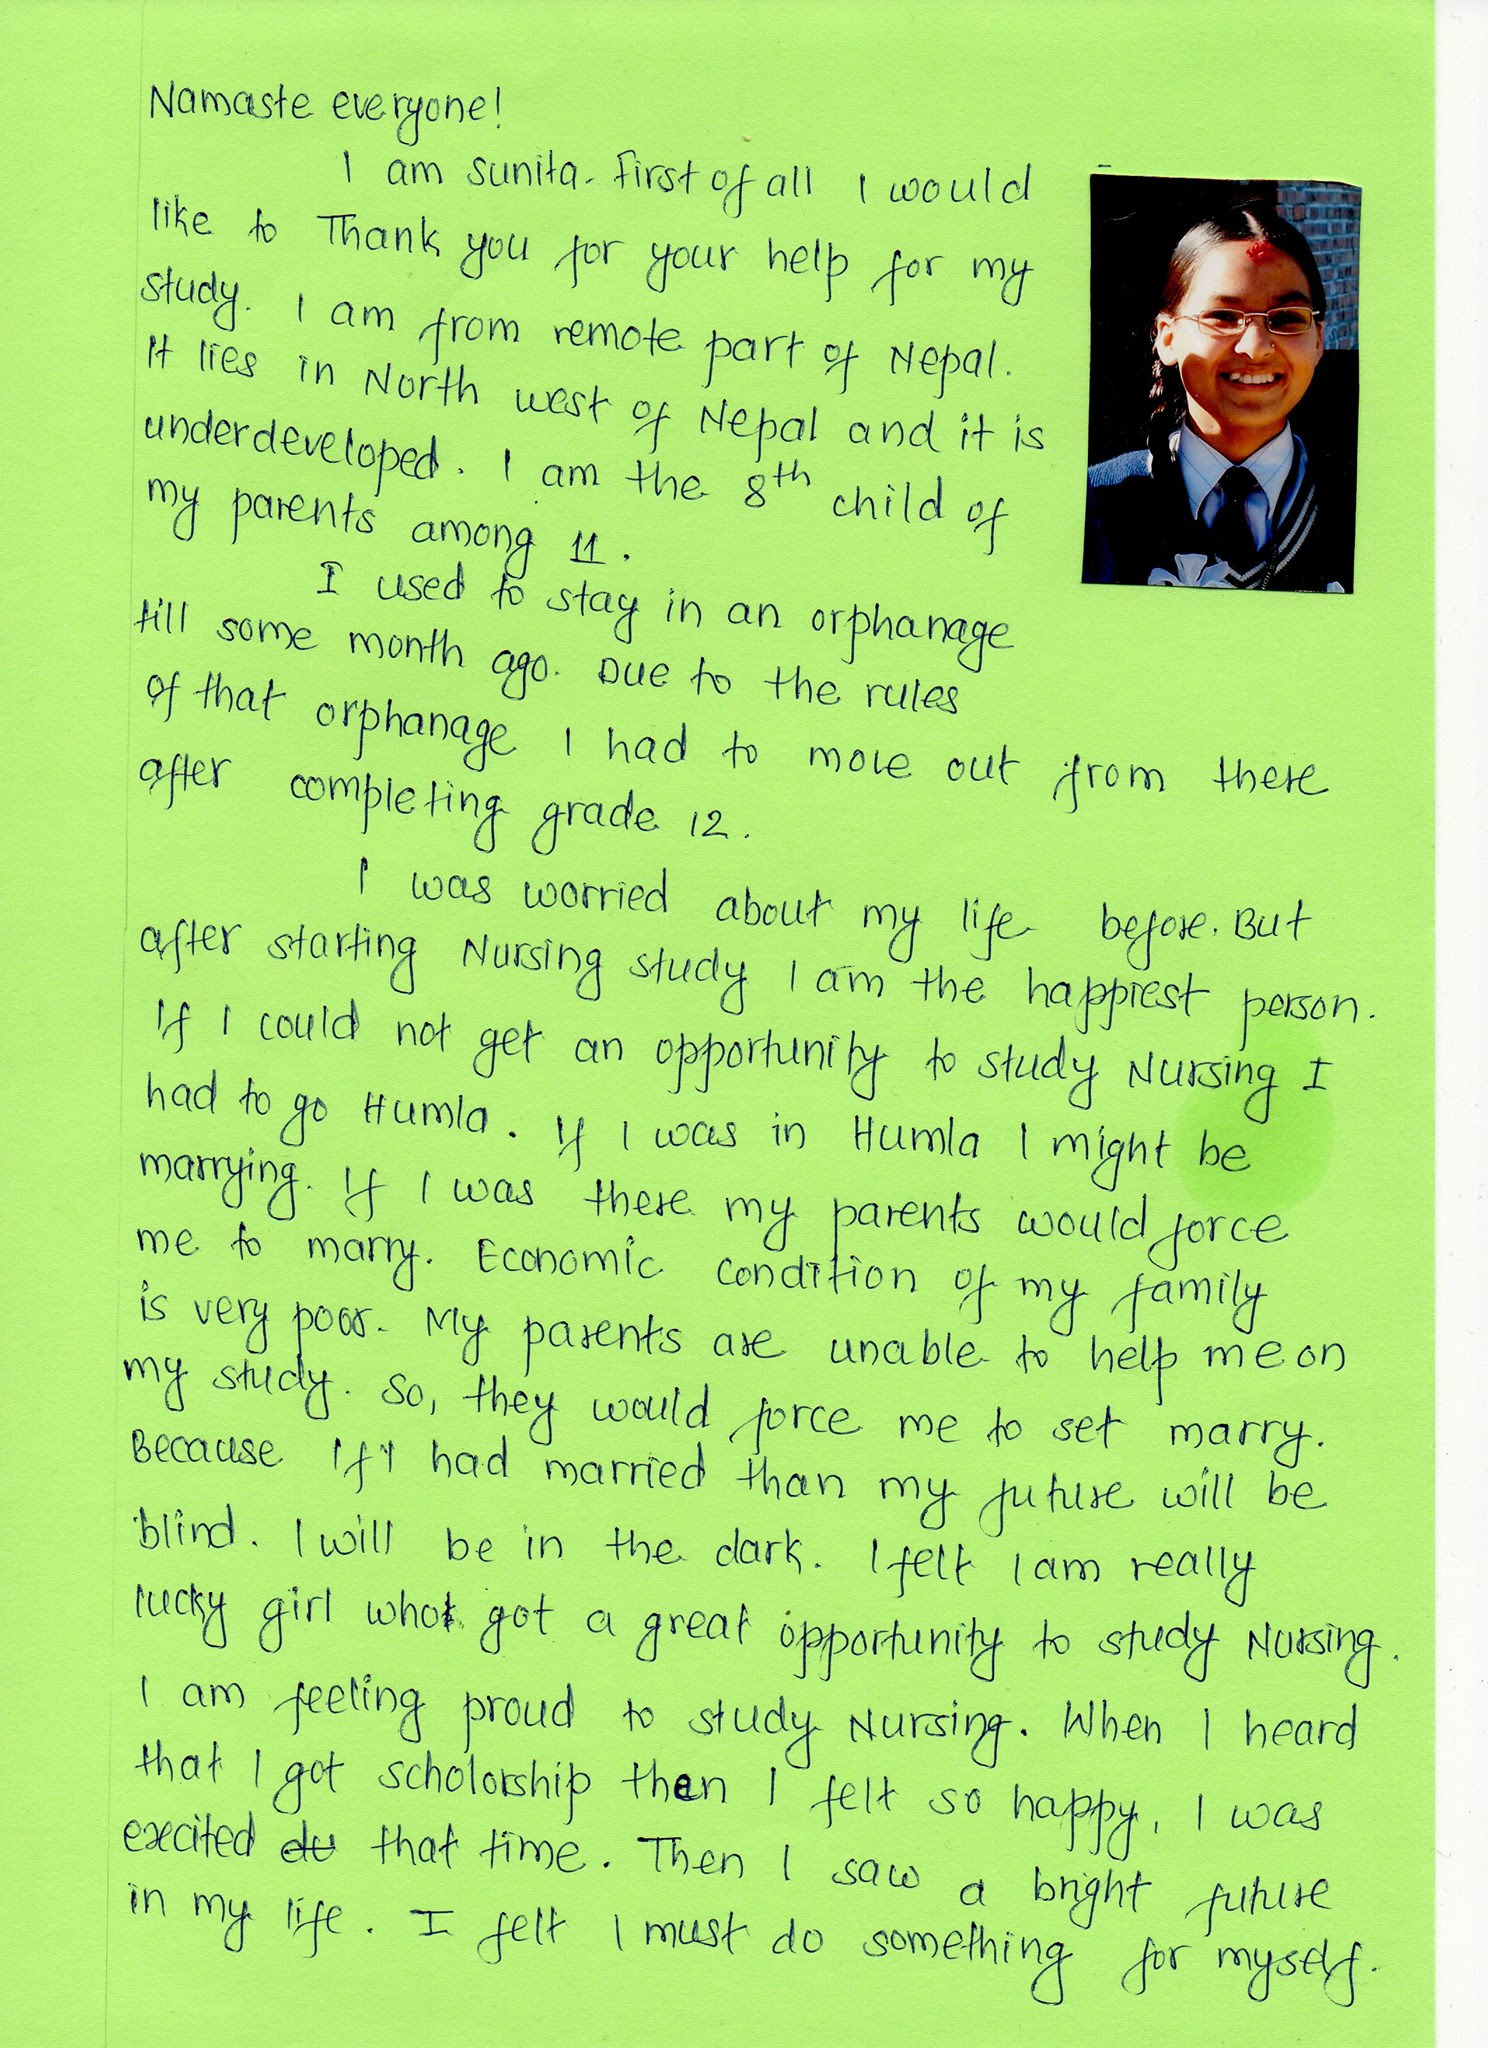 Namaste everyone!
I am Sunita. First of all I would
like to Thank you for your help for my
study. I am from remote part of Nepal.
It lies in North west of Nepal and it is
underdeveloped. I am the 8th child of
my parents among 11.
I used to stay in an orphanage
till some month ago. Due to the rules
of that orphanage I had to move out from there
after completing grade 12.
I was worried about my life before. But
after starting Nursing study I am the happiest person.
If I could not get an opportunity to study Nursing I
had to go Humla. If I was in Humla I might be
marrying. If I was there my parents would force
me to marry. Economic condition of my family
is very poor. My parents are unable to help me on
my study. So, they would force me to set marry.
Because If I had married than my future will be
blind. I will be in the dark. I felt I am really
lucky girl who got a great opportunity to study Nursing.
I am feeling proud to study Nursing. When I heard
that I got scholorship then I felt so happy, I was
excited du that time. Then I saw a bright future
in my life. I felt I must do something for myself.